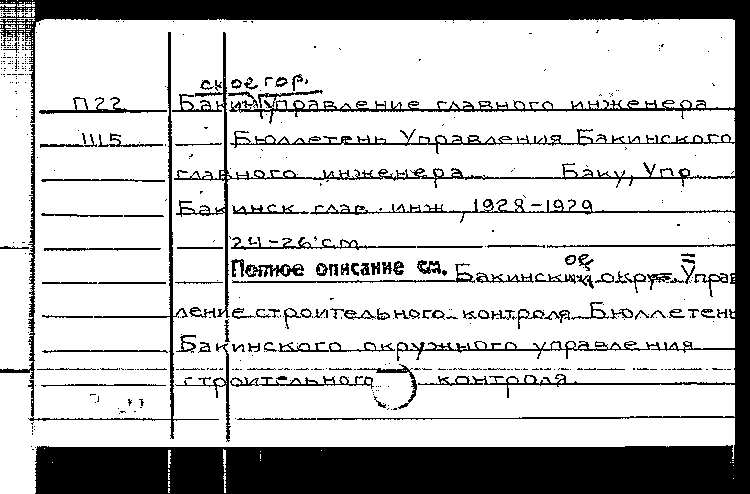 ское гор.
П22 Бакин управление главного инженера
1115 Бюллетень Управления Бакинского
главного инженера Баку, Упр
Бакинск глав. инж., 1928-1929
24-26 см
Полное описание см. Бакинское окр. Управ
ление строительного контроля Бюллетень
Бакинского окружного управления
строительного контроля.